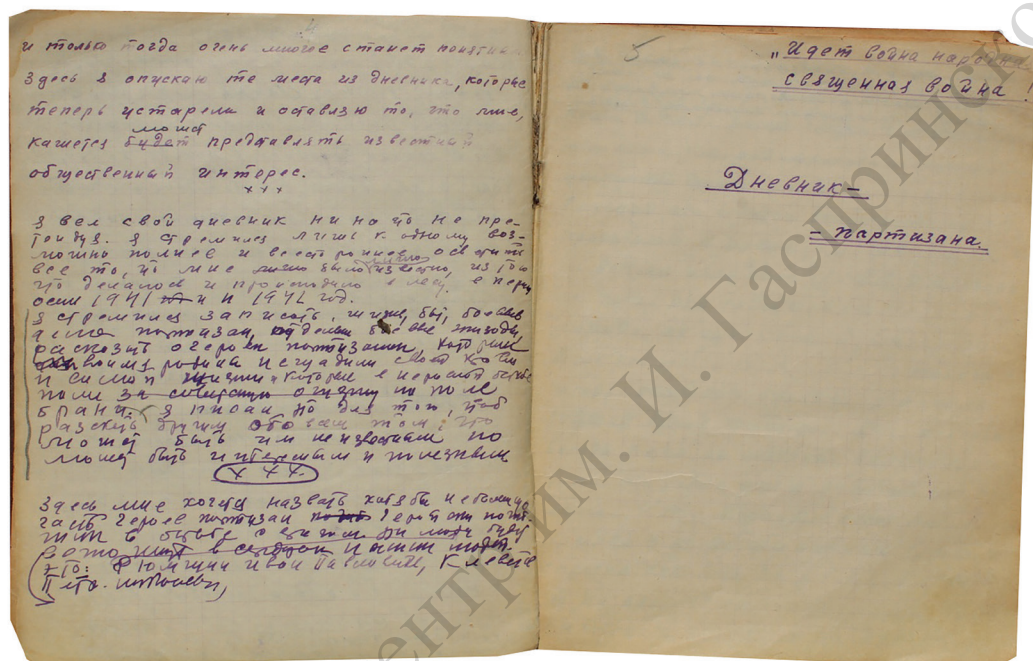 4
и только тогда очень многое станет понятным
Здесь я опускаю те места из дневника, которые
теперь устарели и оставляю то, что мне,
может
кажется будет представлять известный
общественный интерес.
х х х
Я вел свой дневник ни на что не пре-
тендуя. Я стремился лишь к одному воз-
можно полнее и всесторонне осветить
все то, что мне было известно, из того
что делалось и происходило в лесу в период
осени 1941 и 1942 год.
Я стремился записать, жизнь, быт, боевые
дела партизан, отдельные боевые эпизоды,
рассказать о героях партизанах, которые
родины не щадили своей крови
и самой жизни, которые в неравной борьбе
пали за советскую отчизну на поле
брани. Я писал но для того, чтоб
рассказать другим обо всем том, что
может быть им неизвестным но
может быть интересным и полезным
х х х
Здесь мне хочется назвать хотя бы небольшую
часть героев партизан
в борьбе с врагом. люди будут
в сердцах наших людей.
Это: Иван Павлович,
5
„Идет война народная
священная война!
Дневник-
- партизана.
центрим. И. Гаспринско